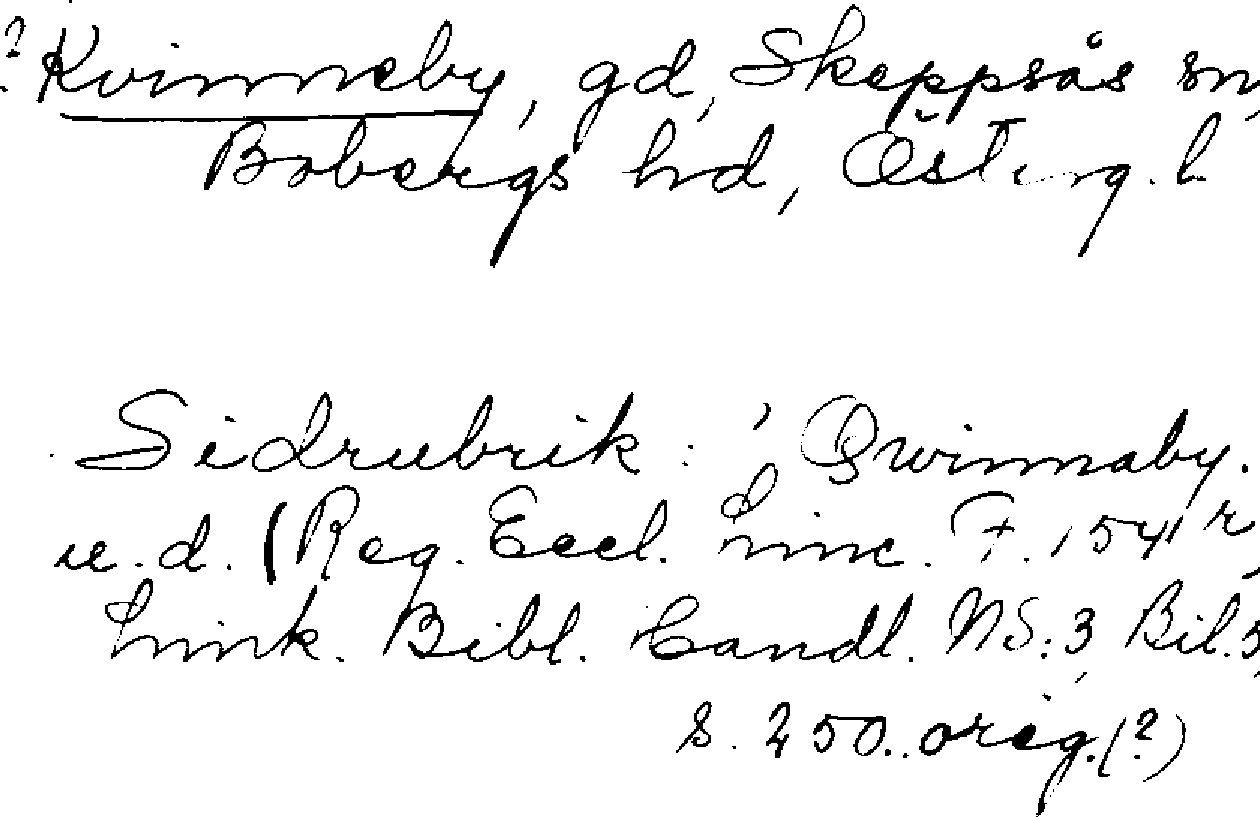 ? Kvinneby, gd, Skeppsås sn,
Bobergs hd, Österg. l
Sidrubrik: Qwinnaby.
u.d. (Reg. Eccl. Linc. F. 154 r,
Link. Bibl. Handl. NS:3, Bil. 5,
s. 250. orig. (?)